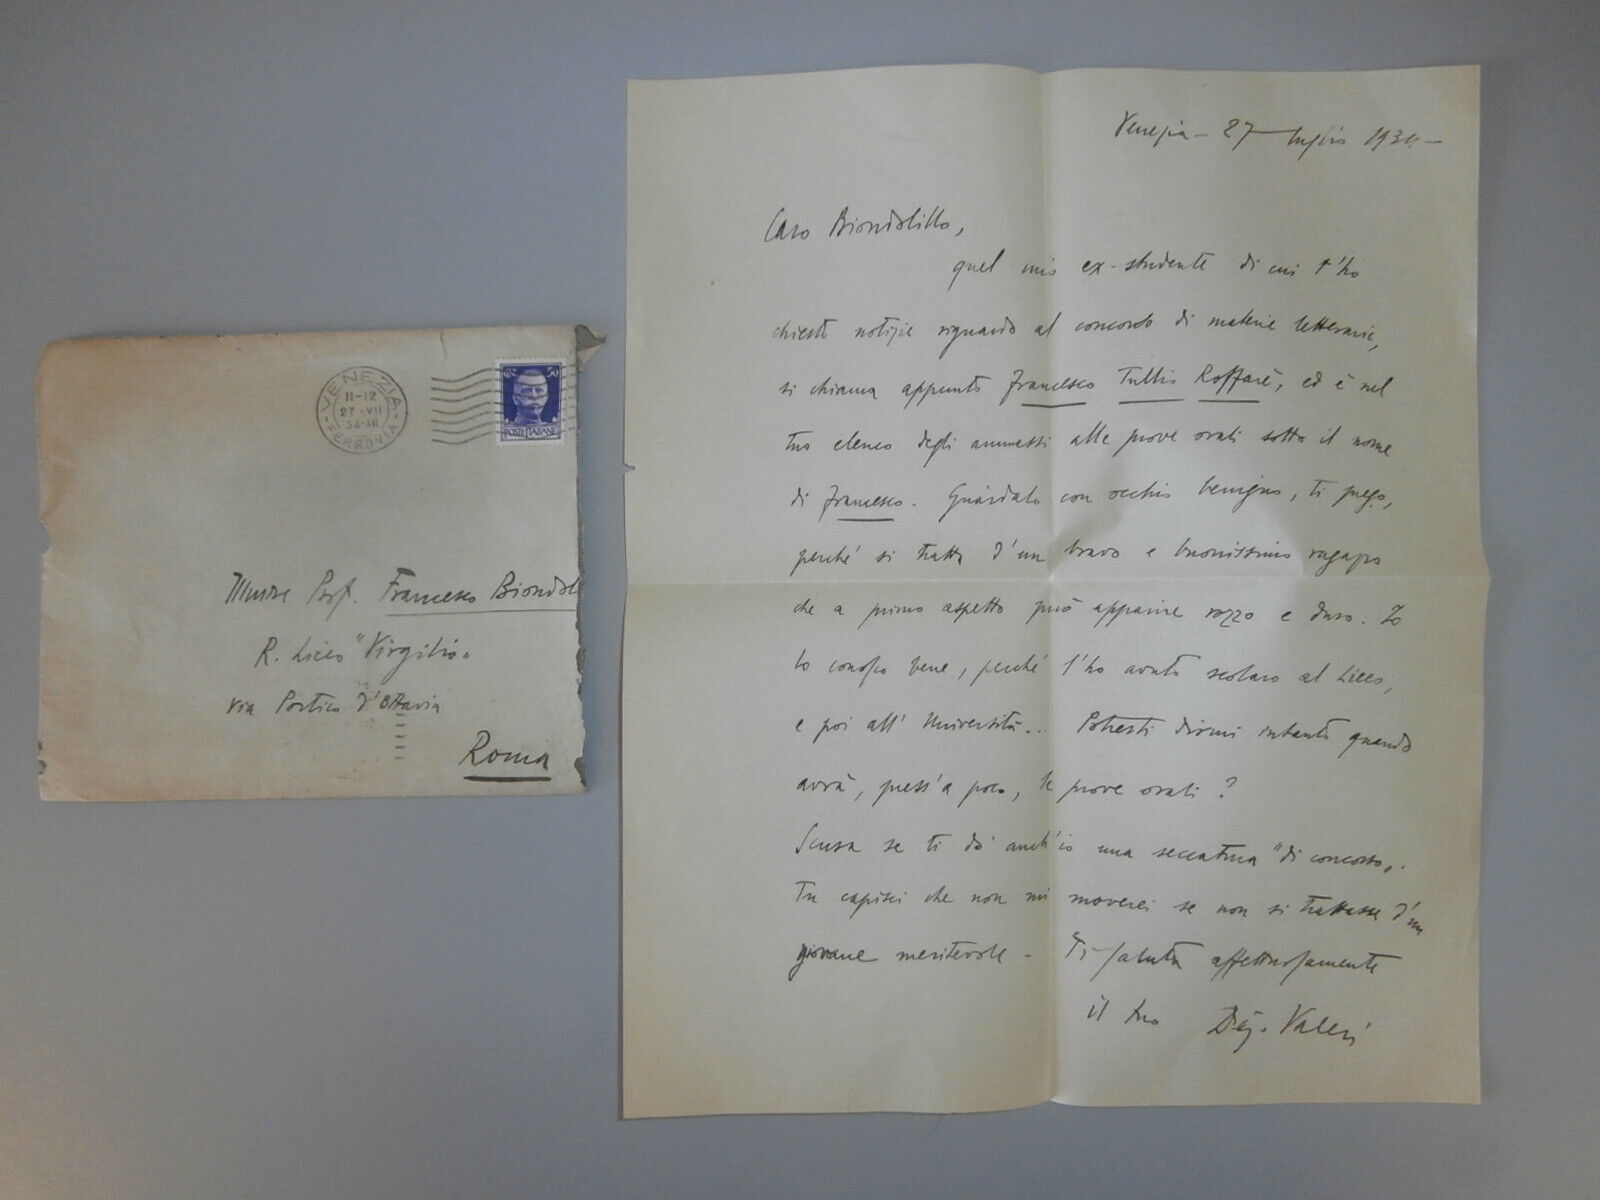 VENEZIA
11-12
27·VII
34·XII
FERROVIA
50
POSTE ITALIANE
Illustre Prof. Francesco Biondol
R. Liceo "Virgilio"
via Portico d'Ottavia
Roma
Venezia - 27 luglio 1934 -
Caro Biondolillo,
quel mio ex-studente di cui t'ho
chiesto notizie riguardo al concorso di materie letterarie,
si chiama appunto Francesco Tullio Roffarè, ed è nel
tuo elenco degli ammessi alle prove orali sotto il nome
di Francesco. Guàrdalo con occhio benigno, ti prego,
perché si tratta d'un bravo e buonissimo ragazzo
che a primo aspetto può apparire rozzo e duro. Io
lo conosco bene, perché l'ho avuto scolaro al Liceo,
e poi all'Università... Potresti dirmi intanto quando
avrà, press'a poco, le prove orali?
Scusa se ti dò anch'io una seccatura "di concorso".
Tu capisci che non mi moverei se non si trattasse d'un
giovane meritevole - Ti saluta affettuosamente
il tuo Dieg. Valeri